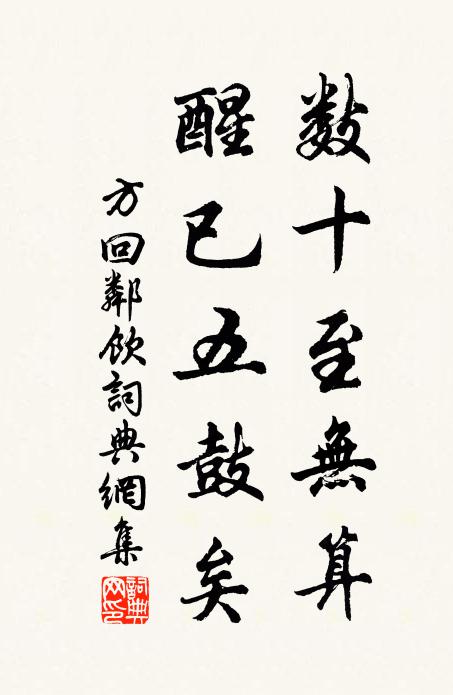 数十至無算
醒已五鼓矣
方回鄰飲詞典網集
詞典網印